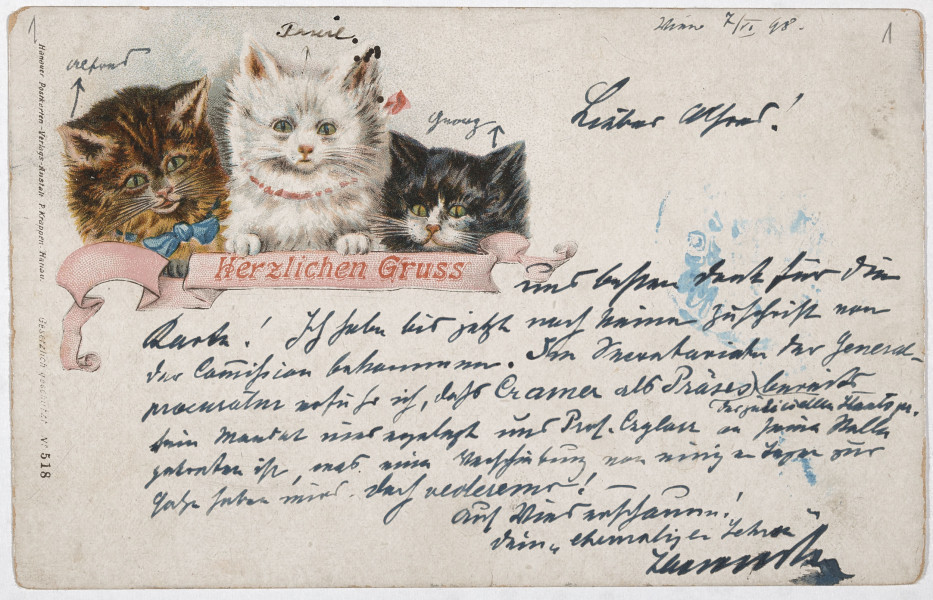 Wien 7/VI 98.
Alfred
Georg
Lieber Alfred!
Herzlichen Gruss
und besten Dank für die
Karte! Ich habe bis jetzt noch keine Zuschrift von
der Comission bekommen. Im Secretariate der General-
procuratur erfuhr ich, daß Cramer als Präses bereits
der judiciellen Staatspr.
sein Mandat niedergelegt und Prof. an seine Stelle
getreten ist, was eine Verschiebung von einigen Tagen zur
Folge haben wird. Doch vederemo!
Auf Wiederschauen!
Dein „ehemaliger Lehrer“
Hanauer Postkarten-Verlags-Anstalt P. Kroppen, Hanau.
Gesetzlich geschützt Nr 518